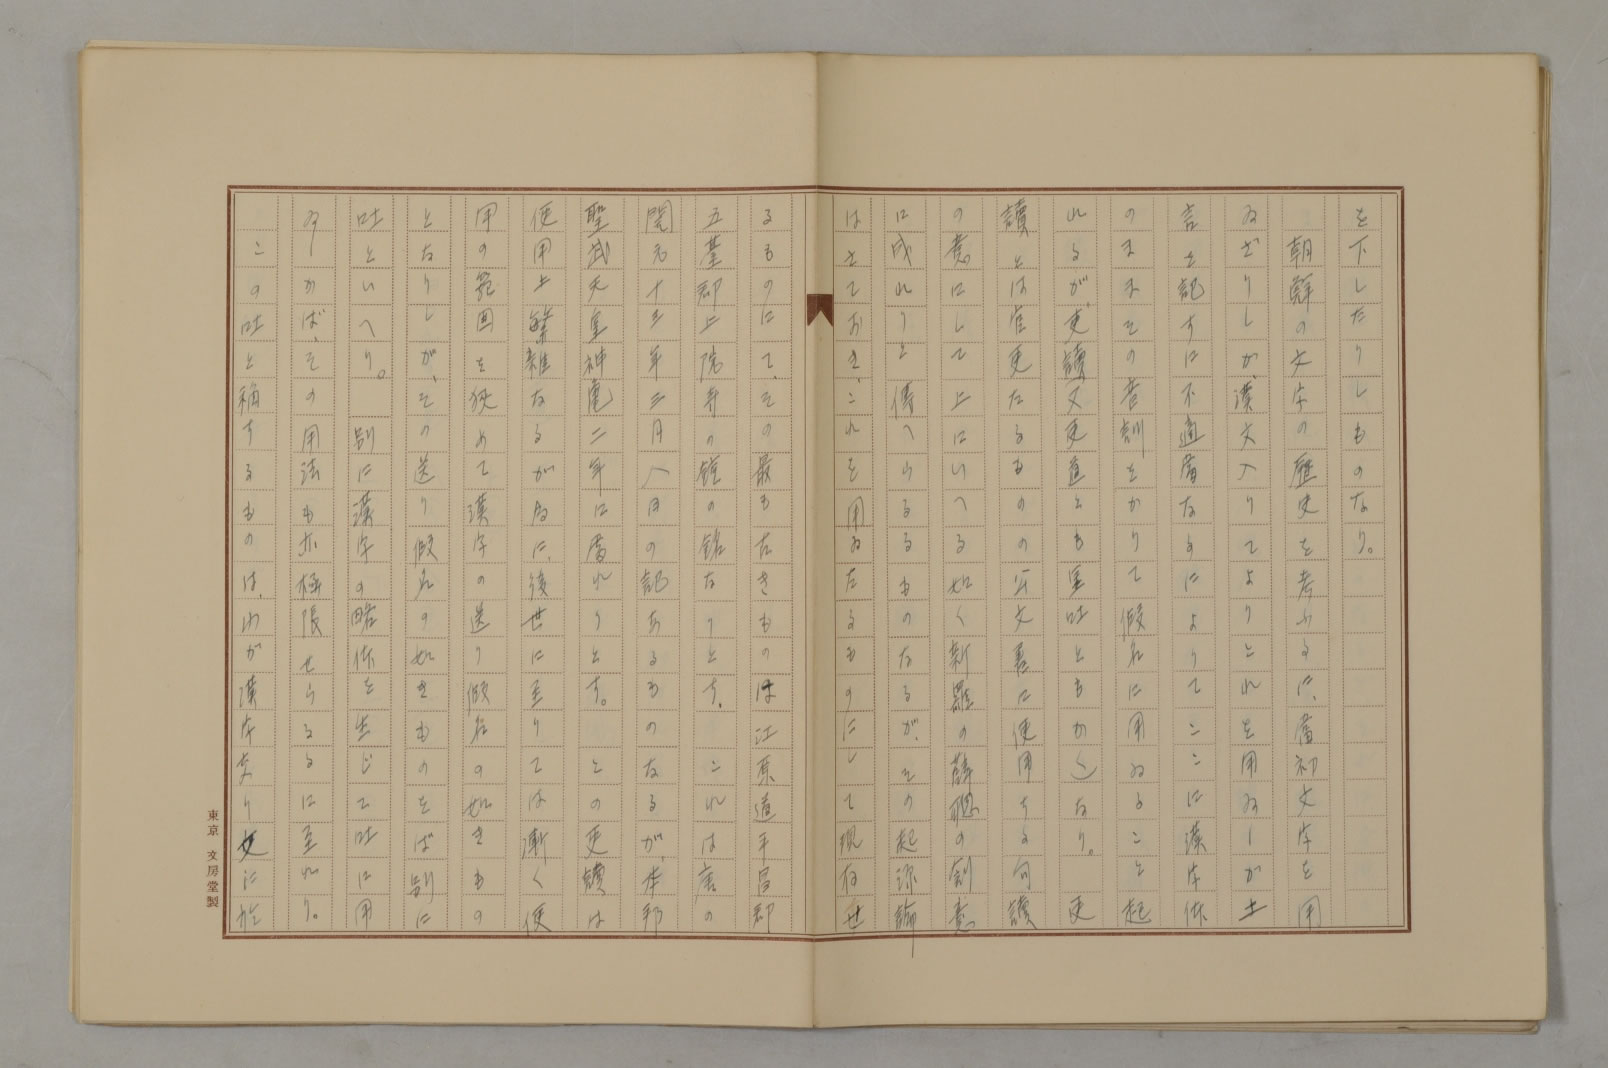 を下したりしものなり。
朝鮮の文字の歴史を考ふるに、當初文字を用
ゐざりしが、漢文入りてよりこれを用ゐしが土
言を記すに不適當なるによりてここに漢字体
のままその音訓をかりて假名に用ゐること起
れるが、吏讀又吏道とも吏吐ともかくなり。吏
讀とは官吏たるものの公文書に使用する句讀
の意にして上にいへる如く新羅の薛聰の創意
に成れりと傳へらるるものなるが、その起源論
はさておき、これを用ゐたるものにして現存せ
るものにて、その最も古きものは江原道平昌郡
五䑓郡上院寺の鐘の銘なりとす。これは唐の
開元十三年三月八日の記あるものなるが、本邦
聖武天皇神亀二年に當れりとす。この吏讀は
使用上繁雑なるが為に、後世に至りては漸く使
用の範囲を狭めて漢字の送り假名の如きもの
となりしが、その送り假名の如きものをば別に
吐といへり。別に漢字の略体を生じて吐に用
ゐしかば、その用法も亦極張せらるるに至れり。
この吐と稱するものは、わが漢字交り文に於
東京 文房堂製